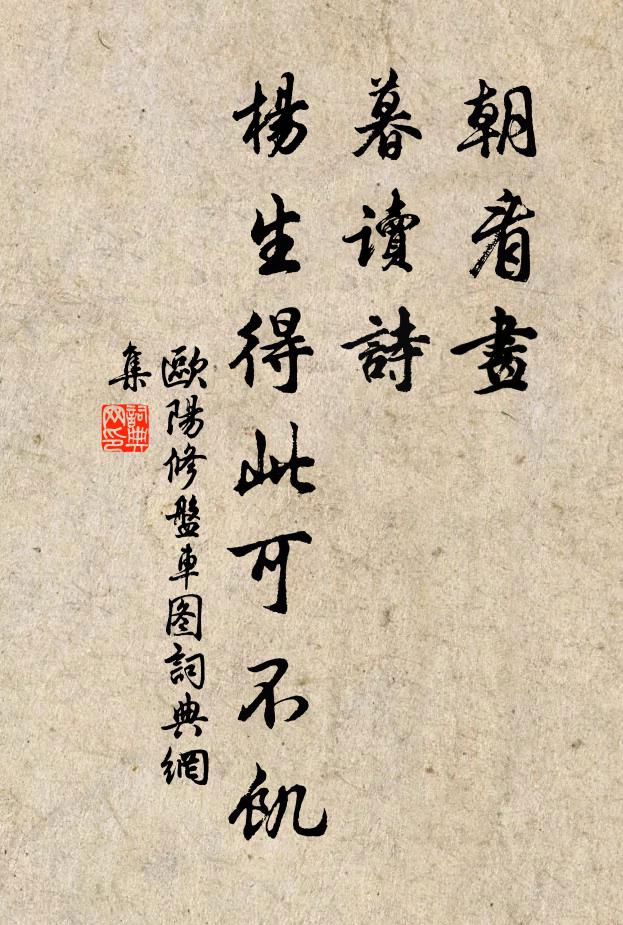 朝看畫
暮讀詩
楊生得此可不飢
歐陽修盤車图詞典網
集
詞典
网印